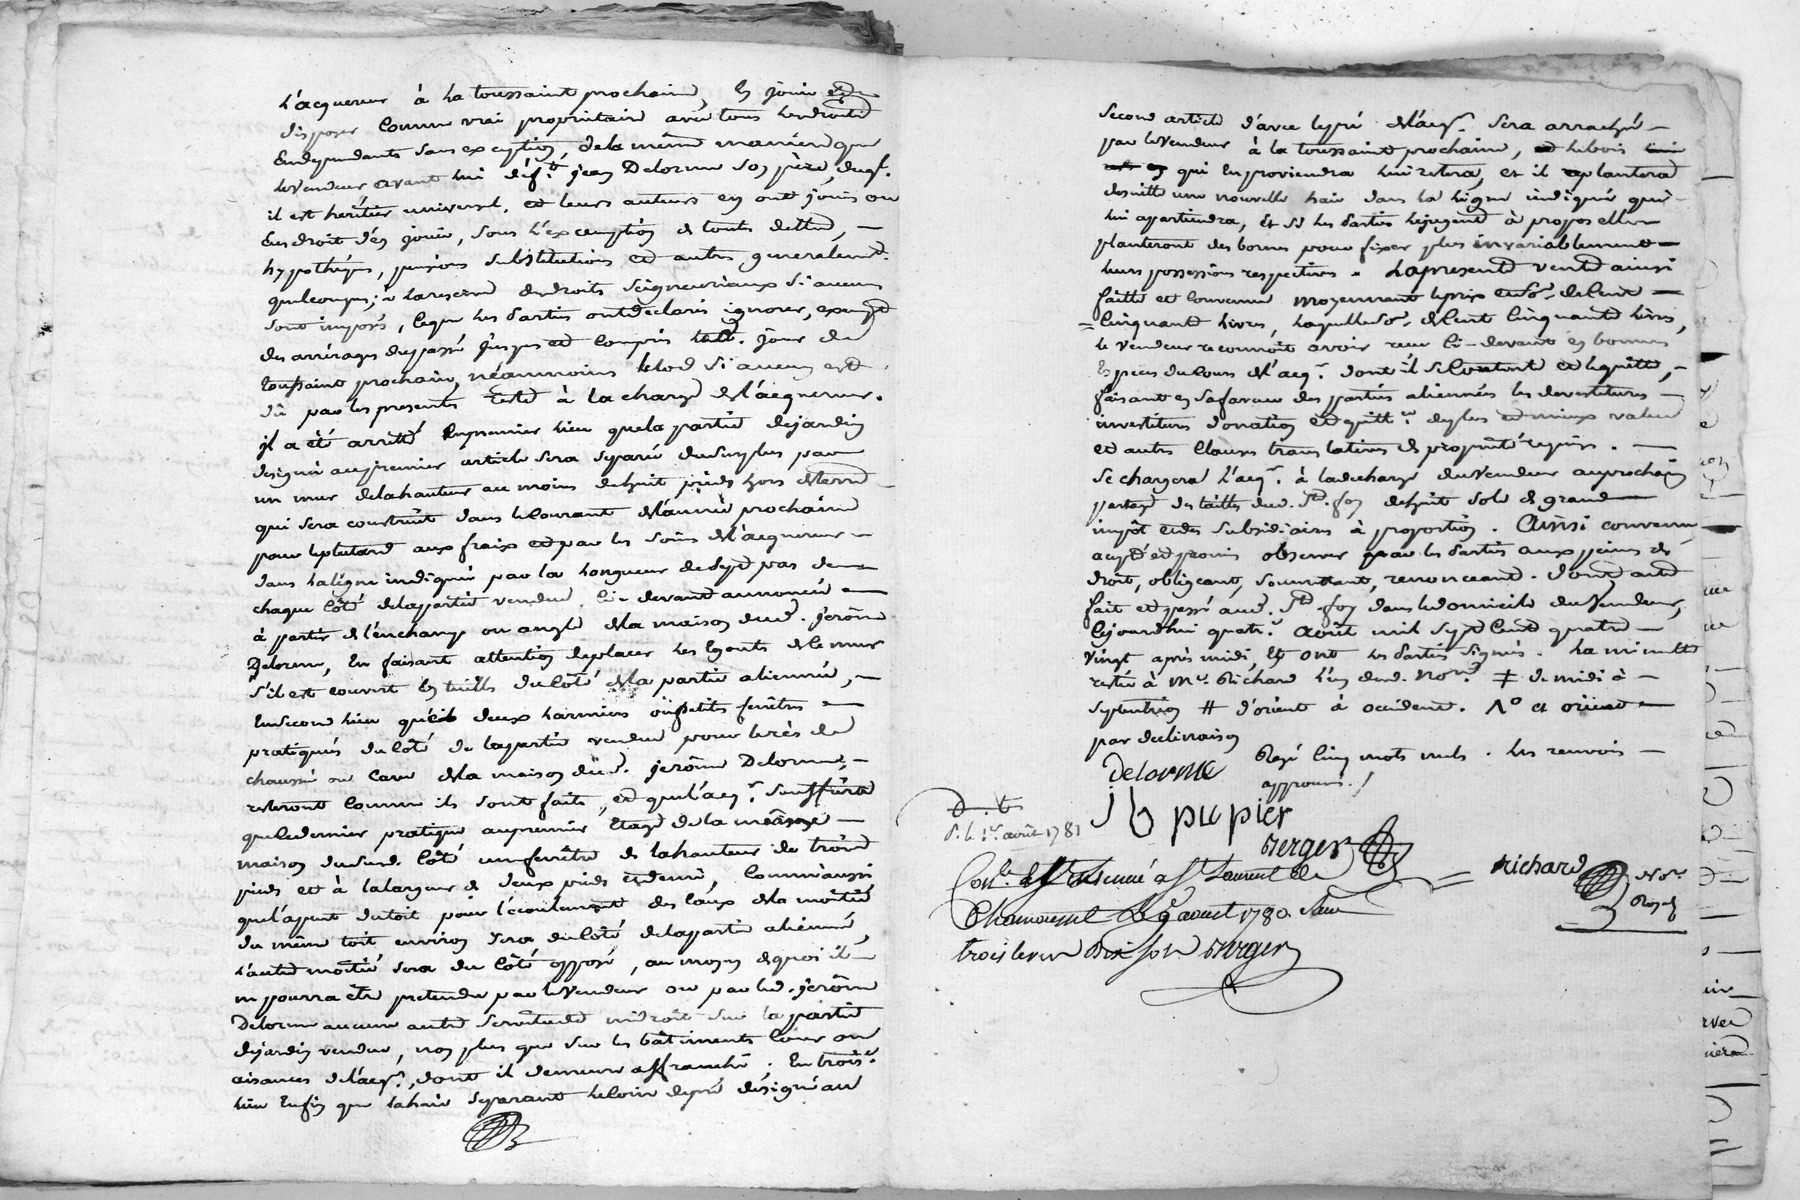 L'acquereur à la toussaint prochaine, En jouir et
disposer Comme vrai propriétaire avec tous les droits
En dependants sans exception, de la même manière que
le vendeur avant lui deft. jean Delorme son père, duql.
il est heritier universel, et leurs auteurs en ont joui ou
Eu droit d'en jouir, sous L'exception de toute dette, —
hypothéques, pensions substitutions et autres generalemt.
quelconques; à la reserve des droits seigneuriaux si aucuns
sont imposés, leqen les parties ont declaré ignorer, exempt
des arrérages du passé jusques et compris led. jour de
toussaint prochain, néanmoins le lod si aucun est
dû par les presents reste à la charge de L'acquereur.
il a été arrêté En premier lieu que la partie de jardin
designée au premier article sera separée du surplus par
un mur de la hauteur au moins de huit pieds hors de terre
qui sera construit dans le courant de L'année prochaine
pour le plutard aux fraix et par les soins de L'acquereur —
dans la ligne indiquée par la longueur de sept pas de
chaque côté de la partie vendue ci-devant annoncée
à partir de L'enchamp ou angle de la maison dud. jerôme
Delorme, En faisant attention de placer les égouts de ce mur
s'il est couvert en tuiles du côté de la partie alienée, —
En second lieu que les deux larmiers ou petits fenêtres —
pratiqués du côté de la partie vendue pour le rès de
chaussée ou Cave de la maison dud. jerôme Delorme, —
resteront comme ils sont faits, et que l'acqr. souffrira
que le dernier pratique au premier Etage de la même —
maison du susd. côté une fenêtre de la hauteur de trois
pieds et à la largeur de deux pieds et demi, Comme aussi
que l'agout du toit pour l'écoulement des Eaux de la moitié
du même toit environ sera du côté de la partie alienée,
L'autre moitié sera du côté opposé, au moyen de quoi il —
ne pourra être pretendu par le vendeur ou par led. jerôme
Delorme aucune autre servitude ni droit sur la partie
de jardin vendue, non plus que sur les bâtiments Cour ou
aisances de L'acqr. dont il demeure affranchi; En troise.
lieu Enfin que la haie separant le loin de pré désigné au
second article d'avec le pré de L'acqr. sera arrachée —
par le vendeur à la toussaint prochaine, le bois
qui En proviendra lui restera, et il replantera
de suite une nouvelle haie dans la ligne indiquée qui —
lui appartiendra, Et si les parties le jugent à propos elles
planteront des bornes pour fixer plus invariablement —
leurs possessions respectives. La presente vente ainsi
faitte et convenue moyennant le prix et se. de Cent —
= Cinquante livres, laquelle se. de Cent Cinquante livres,
le vendeur reconnoit avoir reçu Ci-devant en bonnes
Espèces du cours de L'acqr. dont il se Contente et le quitte, —
faisant en sa faveur des parties alienées les devestitures —
investitures donation et quitte. de plus et mieux value
et autres Clauses translatives de propriété requises. —
Se chargera L'acqr. à la decharge du vendeur au prochain
partage des tailles dud. St. foy de huit sols de grand
impôt et des subsidiaires à proportion. Ainsi convenu,
accepté et promis observer par les parties aux peines de
droit, obligeant, soumettant, renonceant. Dont acte
fait et passé aud. St. foy dans le domicile du vendeur,
Cejourd'hui quatre. août mil sept Cent quatre —
vingt après midi, Et ont les parties signés. La minutte
restée à Me. Richard L'un desd. Nore. ‡ de midi à —
septentrion # d'orient à occident. No et orient —
par declinaison
Rayé Cinq mots nuls. Les renvois —
approuvés./
Delorme
pupier
Berger
Richard Nore. Royal
s. le 1er. août 1781
Conlé. et insinué a St Laurent de
Chamousset le 9 aoust 1780 Reçu
trois livres dix sols Berger